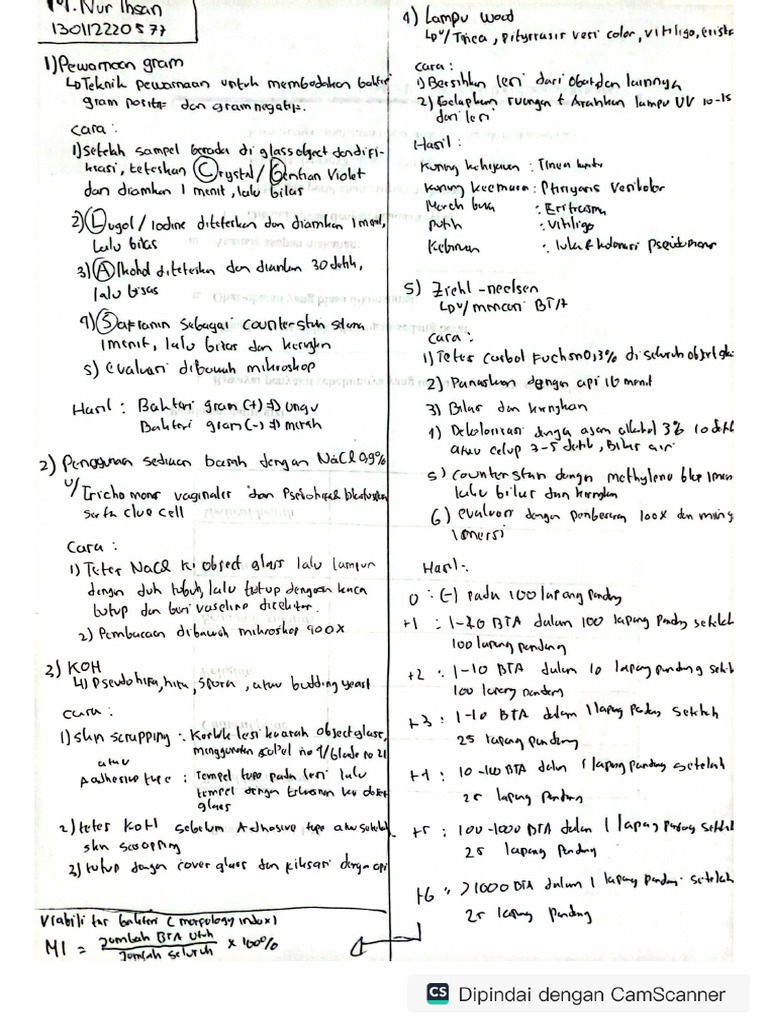 M. Nur Ihsan
130112220577
1) Pewarnaan gram
↳ Teknik pewarnaan untuk membedakan bakteri
gram positif dan gram negatif.
cara :
1) Setelah sampel berada di glass object dan difi-
ksasi, teteskan Crystal / Gentian Violet
dan diamkan 1 menit, lalu bilas
2) Lugol / Iodine diteteskan dan diamkan 1 menit,
lalu bilas
3) Alkohol diteteskan dan diamkan 30 detik,
lalu bilas
4) Safranin sebagai counterstain selama
1 menit, lalu bilas dan keringkan
5) evaluasi dibawah mikroskop
Hasil : Bakteri gram (+) => ungu
Bakteri gram (-) => merah
2) Penggunaan sediaan basah dengan NaCl 0,9%
u/ Trichomonas vaginalis dan Pseudohifa blastospora
serta clue cell
Cara :
1) Tetes NaCl ke object glass lalu campur
dengan duh tubuh, lalu tutup dengan kaca
tutup dan beri vaseline disekitar.
2) Pembacaan dibawah mikroskop 400X
3) KOH
↳ Pseudohifa, hifa, spora, atau budding yeast
cara :
1) skin scrapping : Kerok lesi kearah object glass,
menggunakan scalpel no 1/blade no 21
atau
Adhesive tape : Tempel tape pada lesi lalu
tempel dengan tekanan ke object
glass
2) tetes KOH sebelum Adhesive tape atau setelah
skin scrapping
3) tutup dengan cover glass dan fiksasi dengan api
Viabilitas bakteri (morfology index)
MI = Jumlah BTA Utuh / Jumlah seluruh x 100%
4) Lampu Wood
↳ u/ Tinea, pityriasis versi color, vitiligo, eritr
cara :
1) Bersihkan lesi dari obat dan lainnya
2) Gelapkan ruangan + Arahkan lampu UV 10-15
dari lesi
Hasil :
Kuning kehijauan : Tinea kapitis
Kuning keemasan : Pityriasis Versikolor
Merah bata : Eritrasma
Putih : Vitiligo
Kebiruan : luka & kolonisasi Pseudomonas
5) Ziehl - neelsen
↳ u/ mencari BTA
Cara :
1) Tetes Carbol Fuchsn 0,3% di seluruh objek gla
2) Panaskan dengan api 10 menit
3) Bilas dan keringkan
4) Dekolorisasi dengan asam alkohol 3% 10 detik
atau celup 3-5 detik, Bilas air
5) Counterstain dengan methylene blue 1 menit
lalu bilas dan keringkan
6) evaluasi dengan pembesaran 100x dan minyak
imersi
Hasil :
0 : (-) pada 100 lapang pandang
+1 : 1-10 BTA dalam 100 lapang pandang setelah
100 lapang pandang
+2 : 1-10 BTA dalam 10 lapang pandang setelah
100 lapang pandang
+3 : 1-10 BTA dalam 1 lapang pandang setelah
25 lapang pandang
+4 : 10-100 BTA dalam 1 lapang pandang setelah
25 lapang pandang
+5 : 100-1000 BTA dalam 1 lapang pandang setelah
25 lapang pandang
+6 : >1000 BTA dalam 1 lapang pandang setelah
25 lapang pandang
CS Dipindai dengan CamScanner